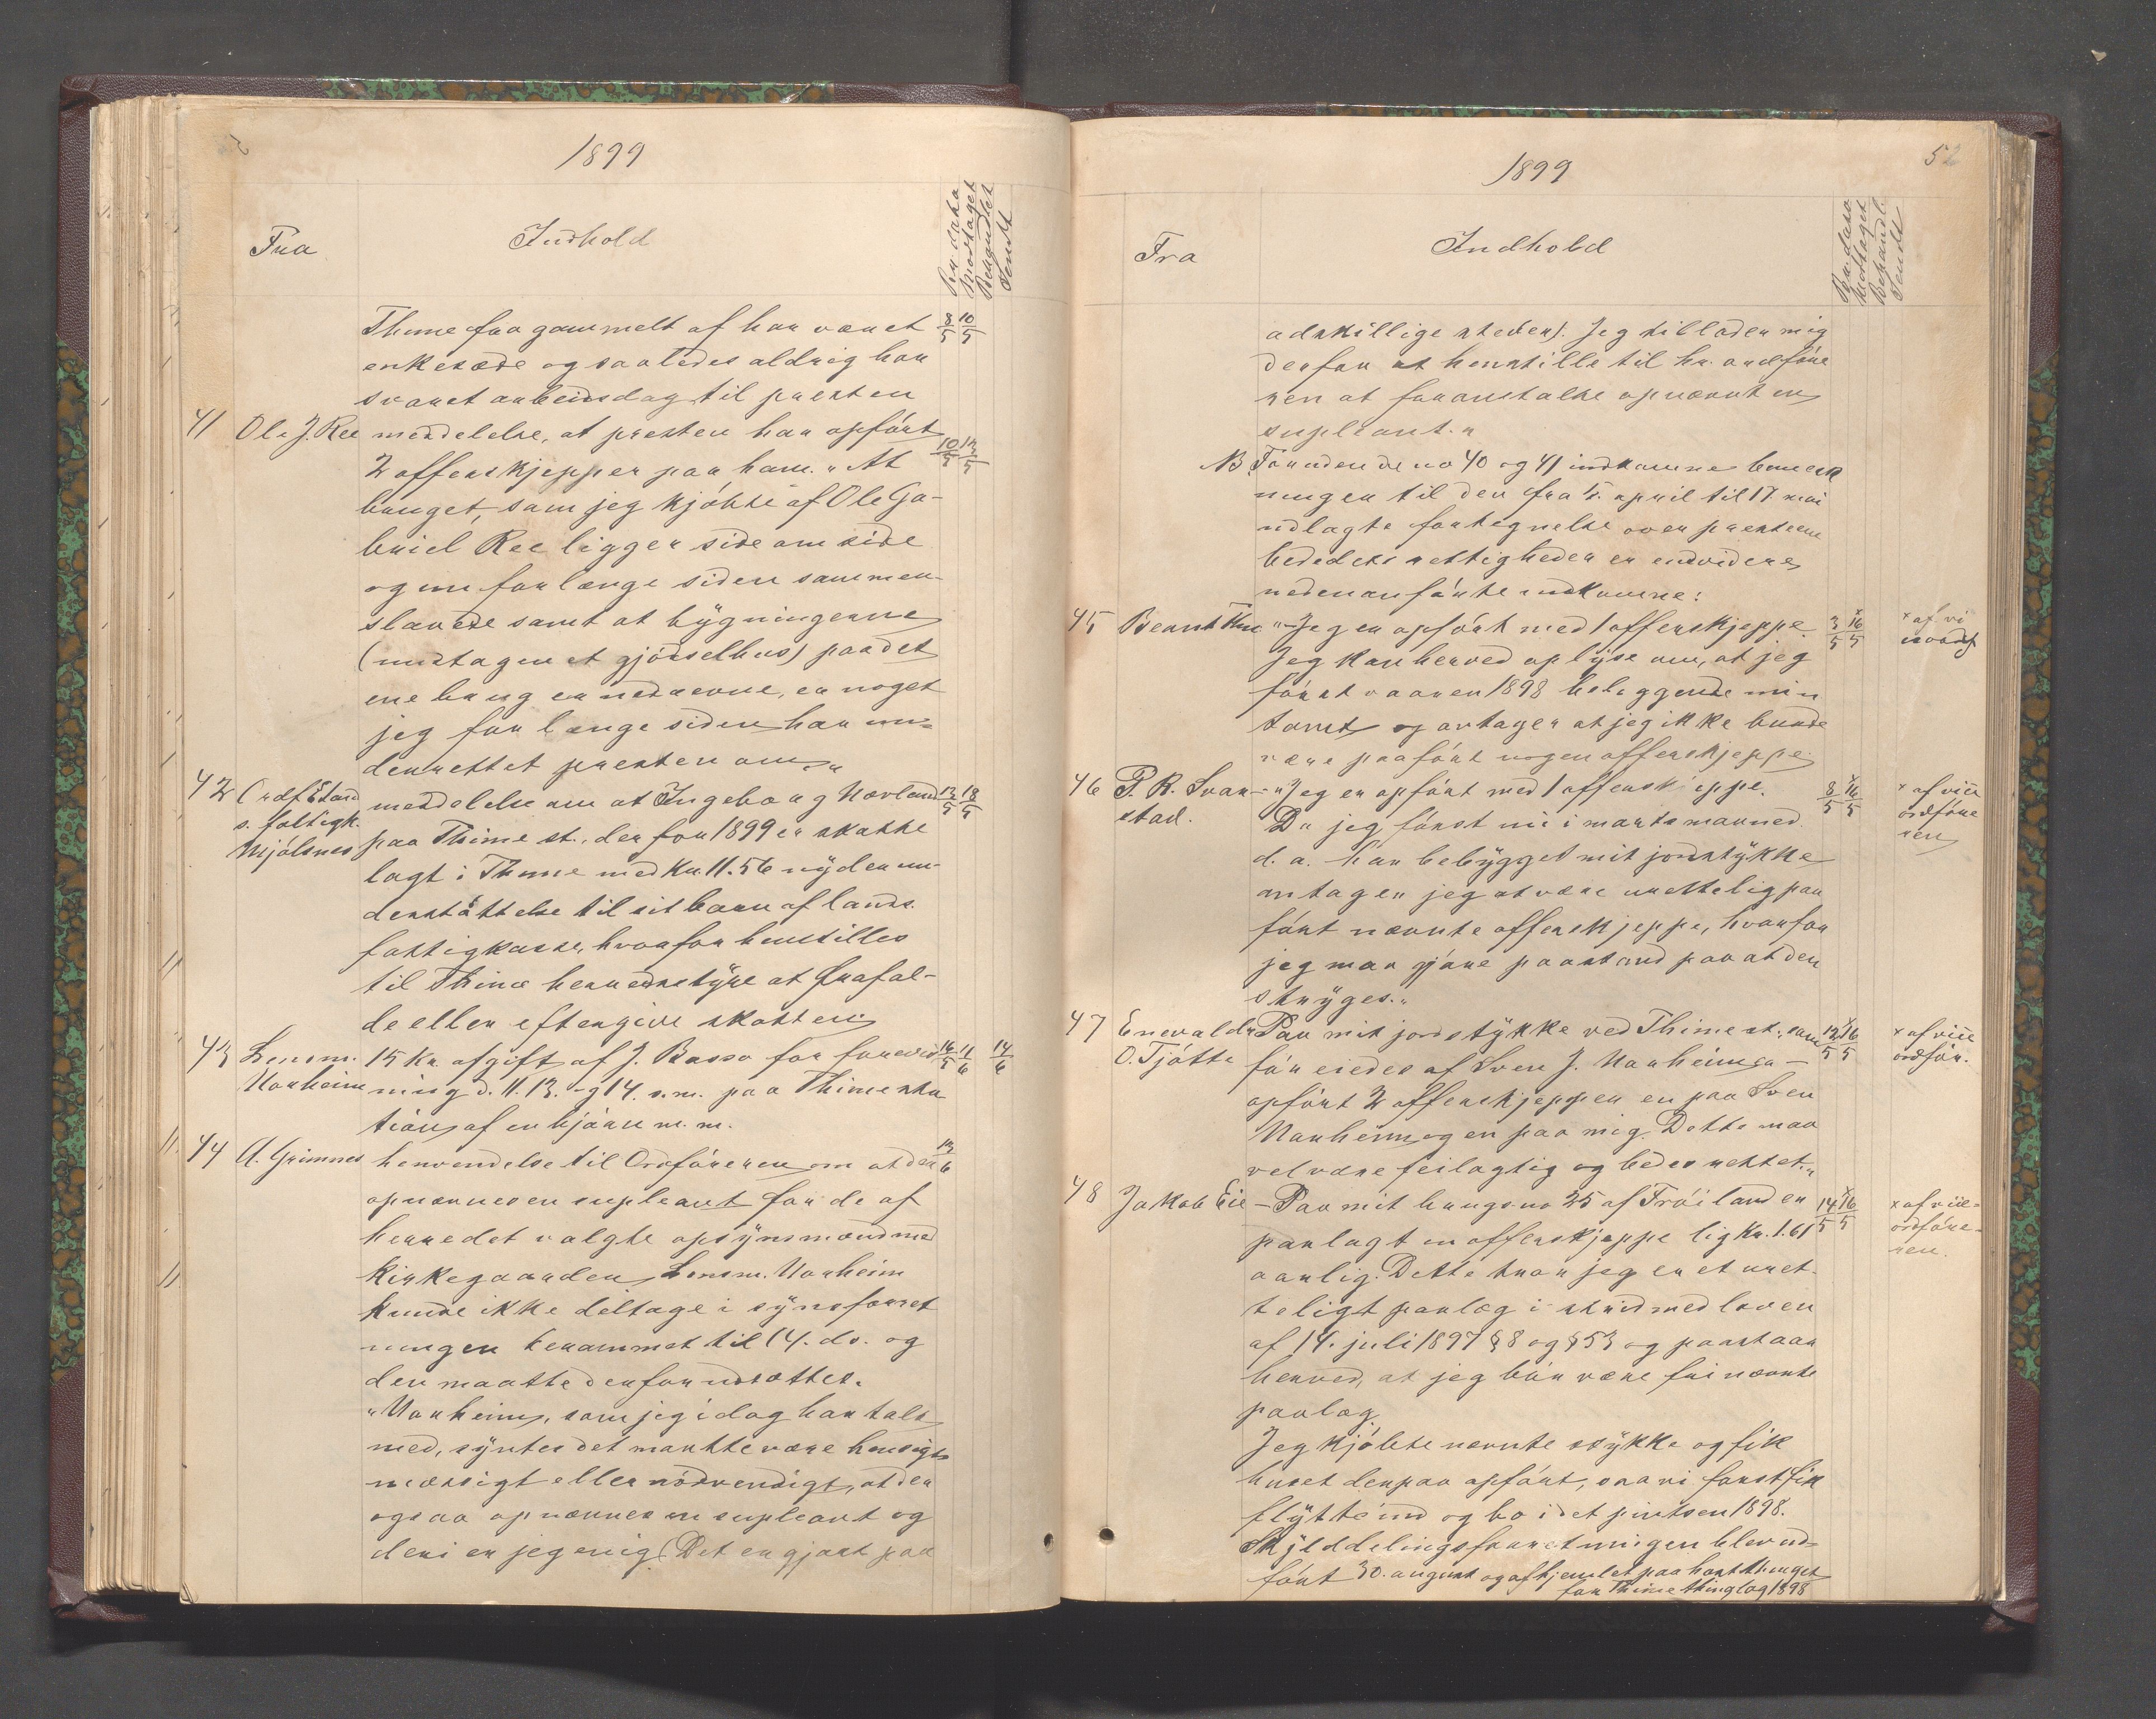 1899
Fra
Indhold
Thime fra gammelt af har været
enkesæde og saaledes aldrig har
svaret arbeidsdag til presten
41 Ole J. Ree meddelelse, at presten har opført
2 offerskjepper paa ham. "At
bruget, som jeg kjøbte af Ole Ga-
briel Ree ligger side om side
og nu for længe siden sammen-
slaaede samt at bygningerne
(undtagen et gjødselhus) paa det
ene brug er nedrevne, er noget
jeg for længe siden har un-
derrettet presten om."
42 Ordf Etard
s. fattigk.
Mjølsnes
meddelelse om at Ingeborg Norland
paa Thime st., der for 1899 er skatte
lagt i Thime med Kr. 11.56 nyder un-
derstøttelse til sit barn af lands.
fattigkasse, hvorfor henstilles
til Thime herredsstyre at frafal-
de eller eftergive skatten
43 Lensm.
Vanheim
15 Kr. afgift af J. Basso for forevis
ning d. 11. 13. og 14. s.m. paa Thime sta
tion af en bjørn m. m.
44 A. Grimnes henvendelse til Ordføreren om at der
opnævnes en supleant for de af
herredet valgte opsynsmænd med
Kirkegaarden, Lensm. Vanheim
kunde ikke deltage i synsforret
ningen berammet til 14. ds. og
den maatte derfor udsættes.
"Vanheim, som jeg i dag har talt
med, syntes det maatte være hensigts
mæssigt eller nødvendigt, at der
ogsaa opnævnes en supleant og
deri er jeg enig (Det er gjort paa
1899
52
Fra
Indhold
adskillige steder). Jeg tillader mig
derfor at henstille til hr. ordføre
ren at foranstalte opnævnt en
supleant."
NB. Foruden de no 40 og 41 indkomne bemerk
ninger til den fra 15. april til 17 mai
udlagte fortegnelse over presteem
bedets rettigheder er endvidere
nedenanførte indkomne:
45 Bernt Hus "Jeg er opført med 1 offerskjeppe.
Jeg kan herved oplyse om, at jeg
først vaaren 1898 bebyggende min
tomt og antager at jeg ikke burde
være paaført nogen offerskjeppe.
3/5 16/5
46 P. R. Svan-
stad.
"Jeg er opført med 1 offerskjeppe.
Da jeg først nu i marts maaned
d. a. har bebygget mit jordstykke
antager jeg at være urettelig paa
ført nævnte offerskjeppe, hvorfor
jeg maa gjøre paastand paa at den
stryges."
8/5 16/5
x af vice
ordføre
ren
47 Enevald
O. Tjøtte
"Paa mit jordstykke ved Thime st., som
før eiedes af Sven J. Vanheim er
opført 2 offerskjepper en paa Sven
Vanheim og en paa mig. Dette maa
vel være feilagtig og bedes rettet."
12/5 16/5
x af vice
ordfør.
48 Jakob Eie - Paa mit brugsno 25 af Frøiland er
paalagt en offerskjeppe lig Kr. 1.61
aarlig. Dette tror jeg er et uret-
teligt paalæg i strid med loven
af 14. juli 1897 § 8 og § 53 og paastaar
herved, at jeg bør være fri nævnte
paalæg.
Jeg kjøbte nævnte stykke og fik
huset derpaa opført, saa vi først fik
flytte ind og bo i det pintsen 1898.
Skylddelingsforretningen blev ud-
ført 30. august og afhjemlet paa høstthinget
for Thime thinglag 1898
14/5 16/5
x af vice-
ordføre-
ren.